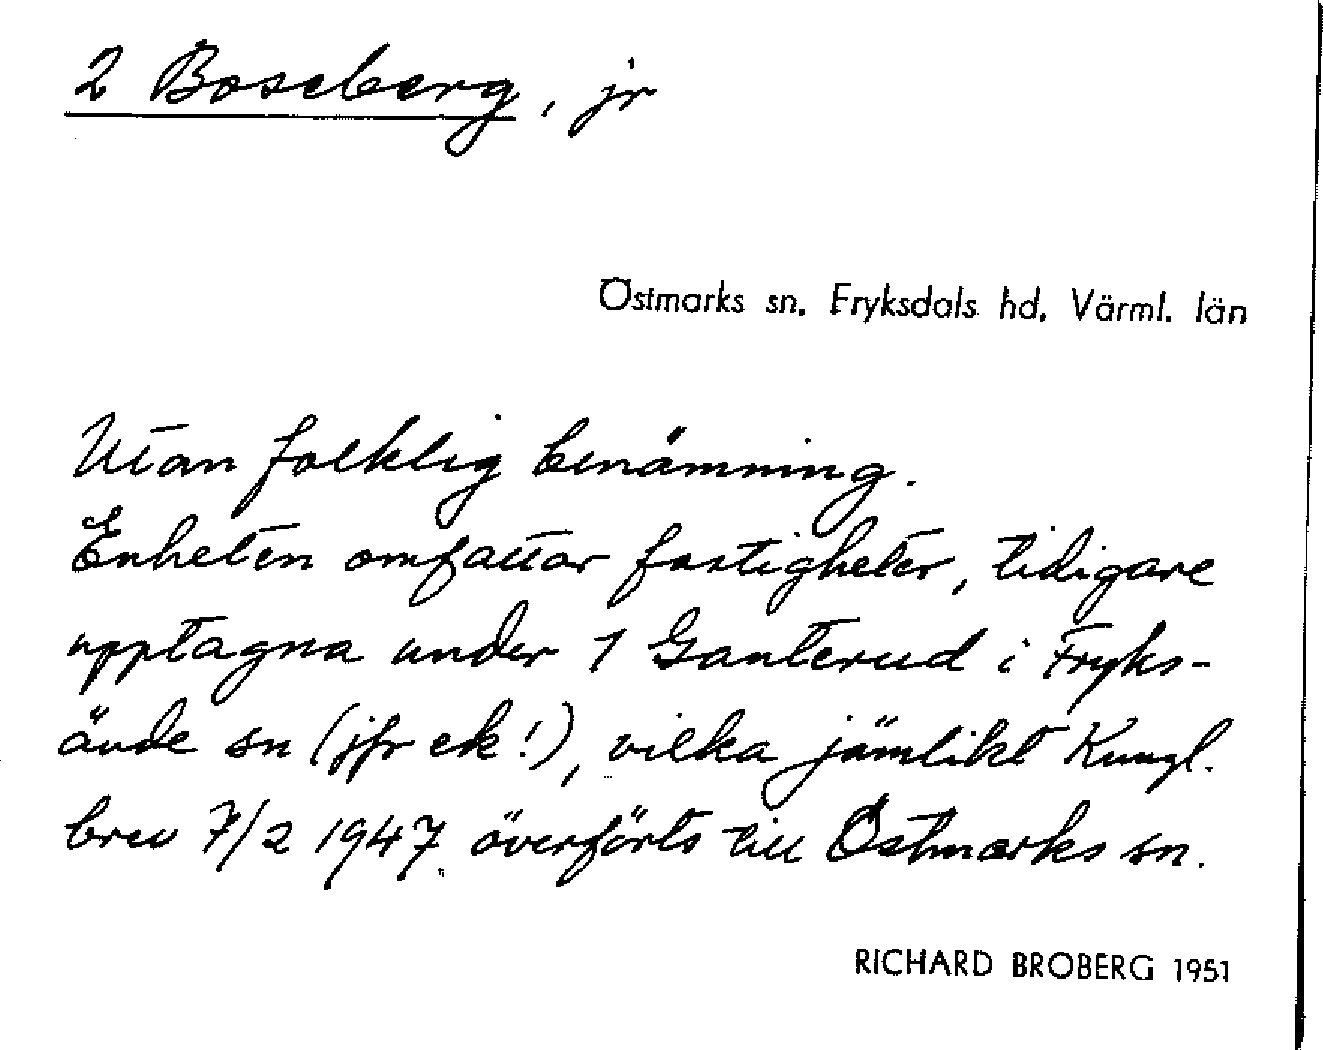 2 Boseberg, jr
Östmarks sn. Fryksdals hd. Värml. län
Utan folklig benämning.
Enheten omfattar fastigheter, tidigare
upptagna under 1 Ganterud i Fryks-
ände sn (jfr ek!), vilka jämlikt Kungl.
brev 7/2 1947 överförts till Östmarks sn.
RICHARD BROBERG 1951